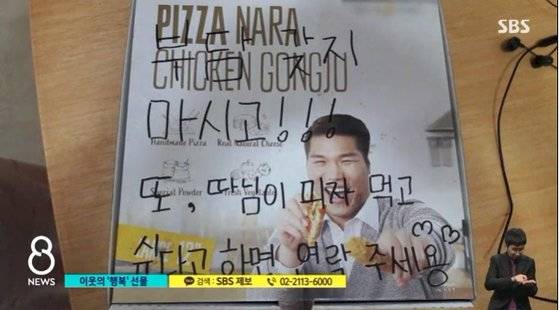 SBS
PIZZA NARA
CHICKEN GONGJU
부담 갖지
마시고!!!
Handmade Pizza
Real Natural Cheese
Special Powder
Fresh Vegetable
또, 따님이 피자 먹고
싶다고 하면 연락 주세요
8
NEWS
이웃의 '행복' 선물
검색 : SBS 제보
02-2113-6000